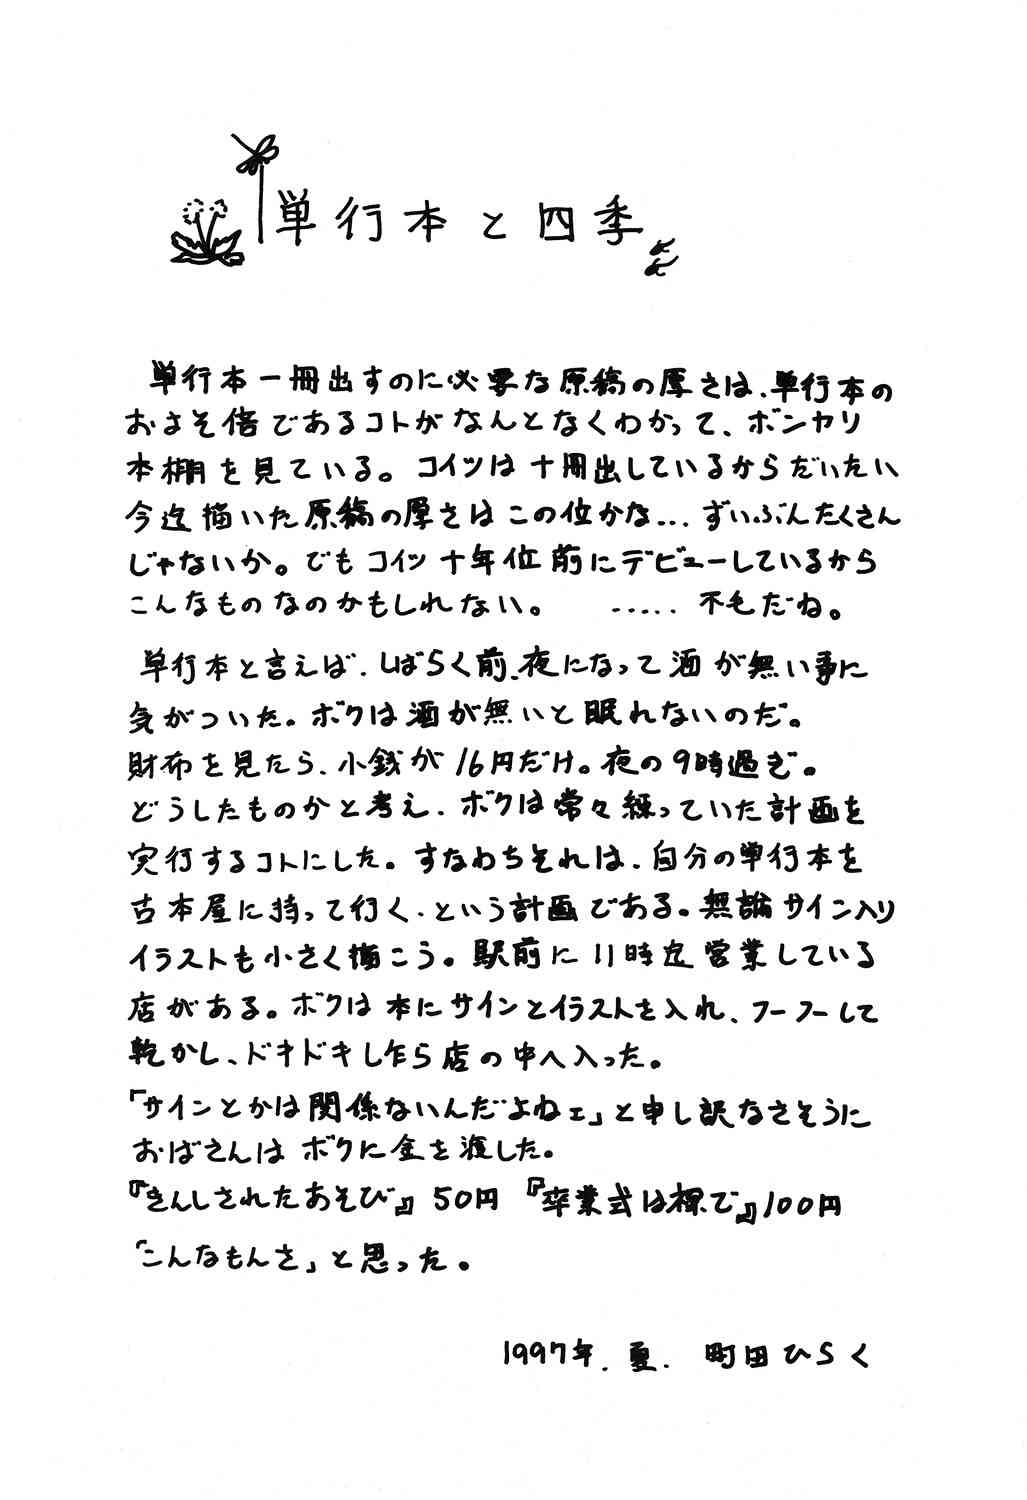 単行本と四季
単行本一冊出すのに必要な原稿の厚さは、単行本の
おさそ倍であるコトがなんとなくわかって、ボンヤリ
本棚を見ている。コイツは十冊出しているからだいたい
今迄描いた原稿の厚さはこの位かな…ずいぶんたくさん
じゃないか。でもコイツ十年位前にデビューしているから
こんなものなのかもしれない。 ‥‥‥不毛だね。
単行本と言えば、しばらく前、夜になって酒が無い事に
気がついた。ボクは酒が無いと眠れないのだ。
財布を見たら、小銭が16円だけ。夜の9時過ぎ。
どうしたものかと考え、ボクは常々練っていた計画を
実行するコトにした。すなわちそれは、自分の単行本を
古本屋に持って行く、という計画である。無論サイン入り
イラストも小さく描こう。駅前に11時迄営業している
店がある。ボクは本にサインとイラストを入れ、フーフーして
乾かし、ドキドキし乍ら店の中へ入った。
「サインとかは関係ないんだよねェ」と申し訳なさそうに
おばさんはボクに金を渡した。
『きんしされたあそび』50円 『卒業式は裸で』100円
「こんなもんさ」と思った。
1997年.夏. 町田ひらく